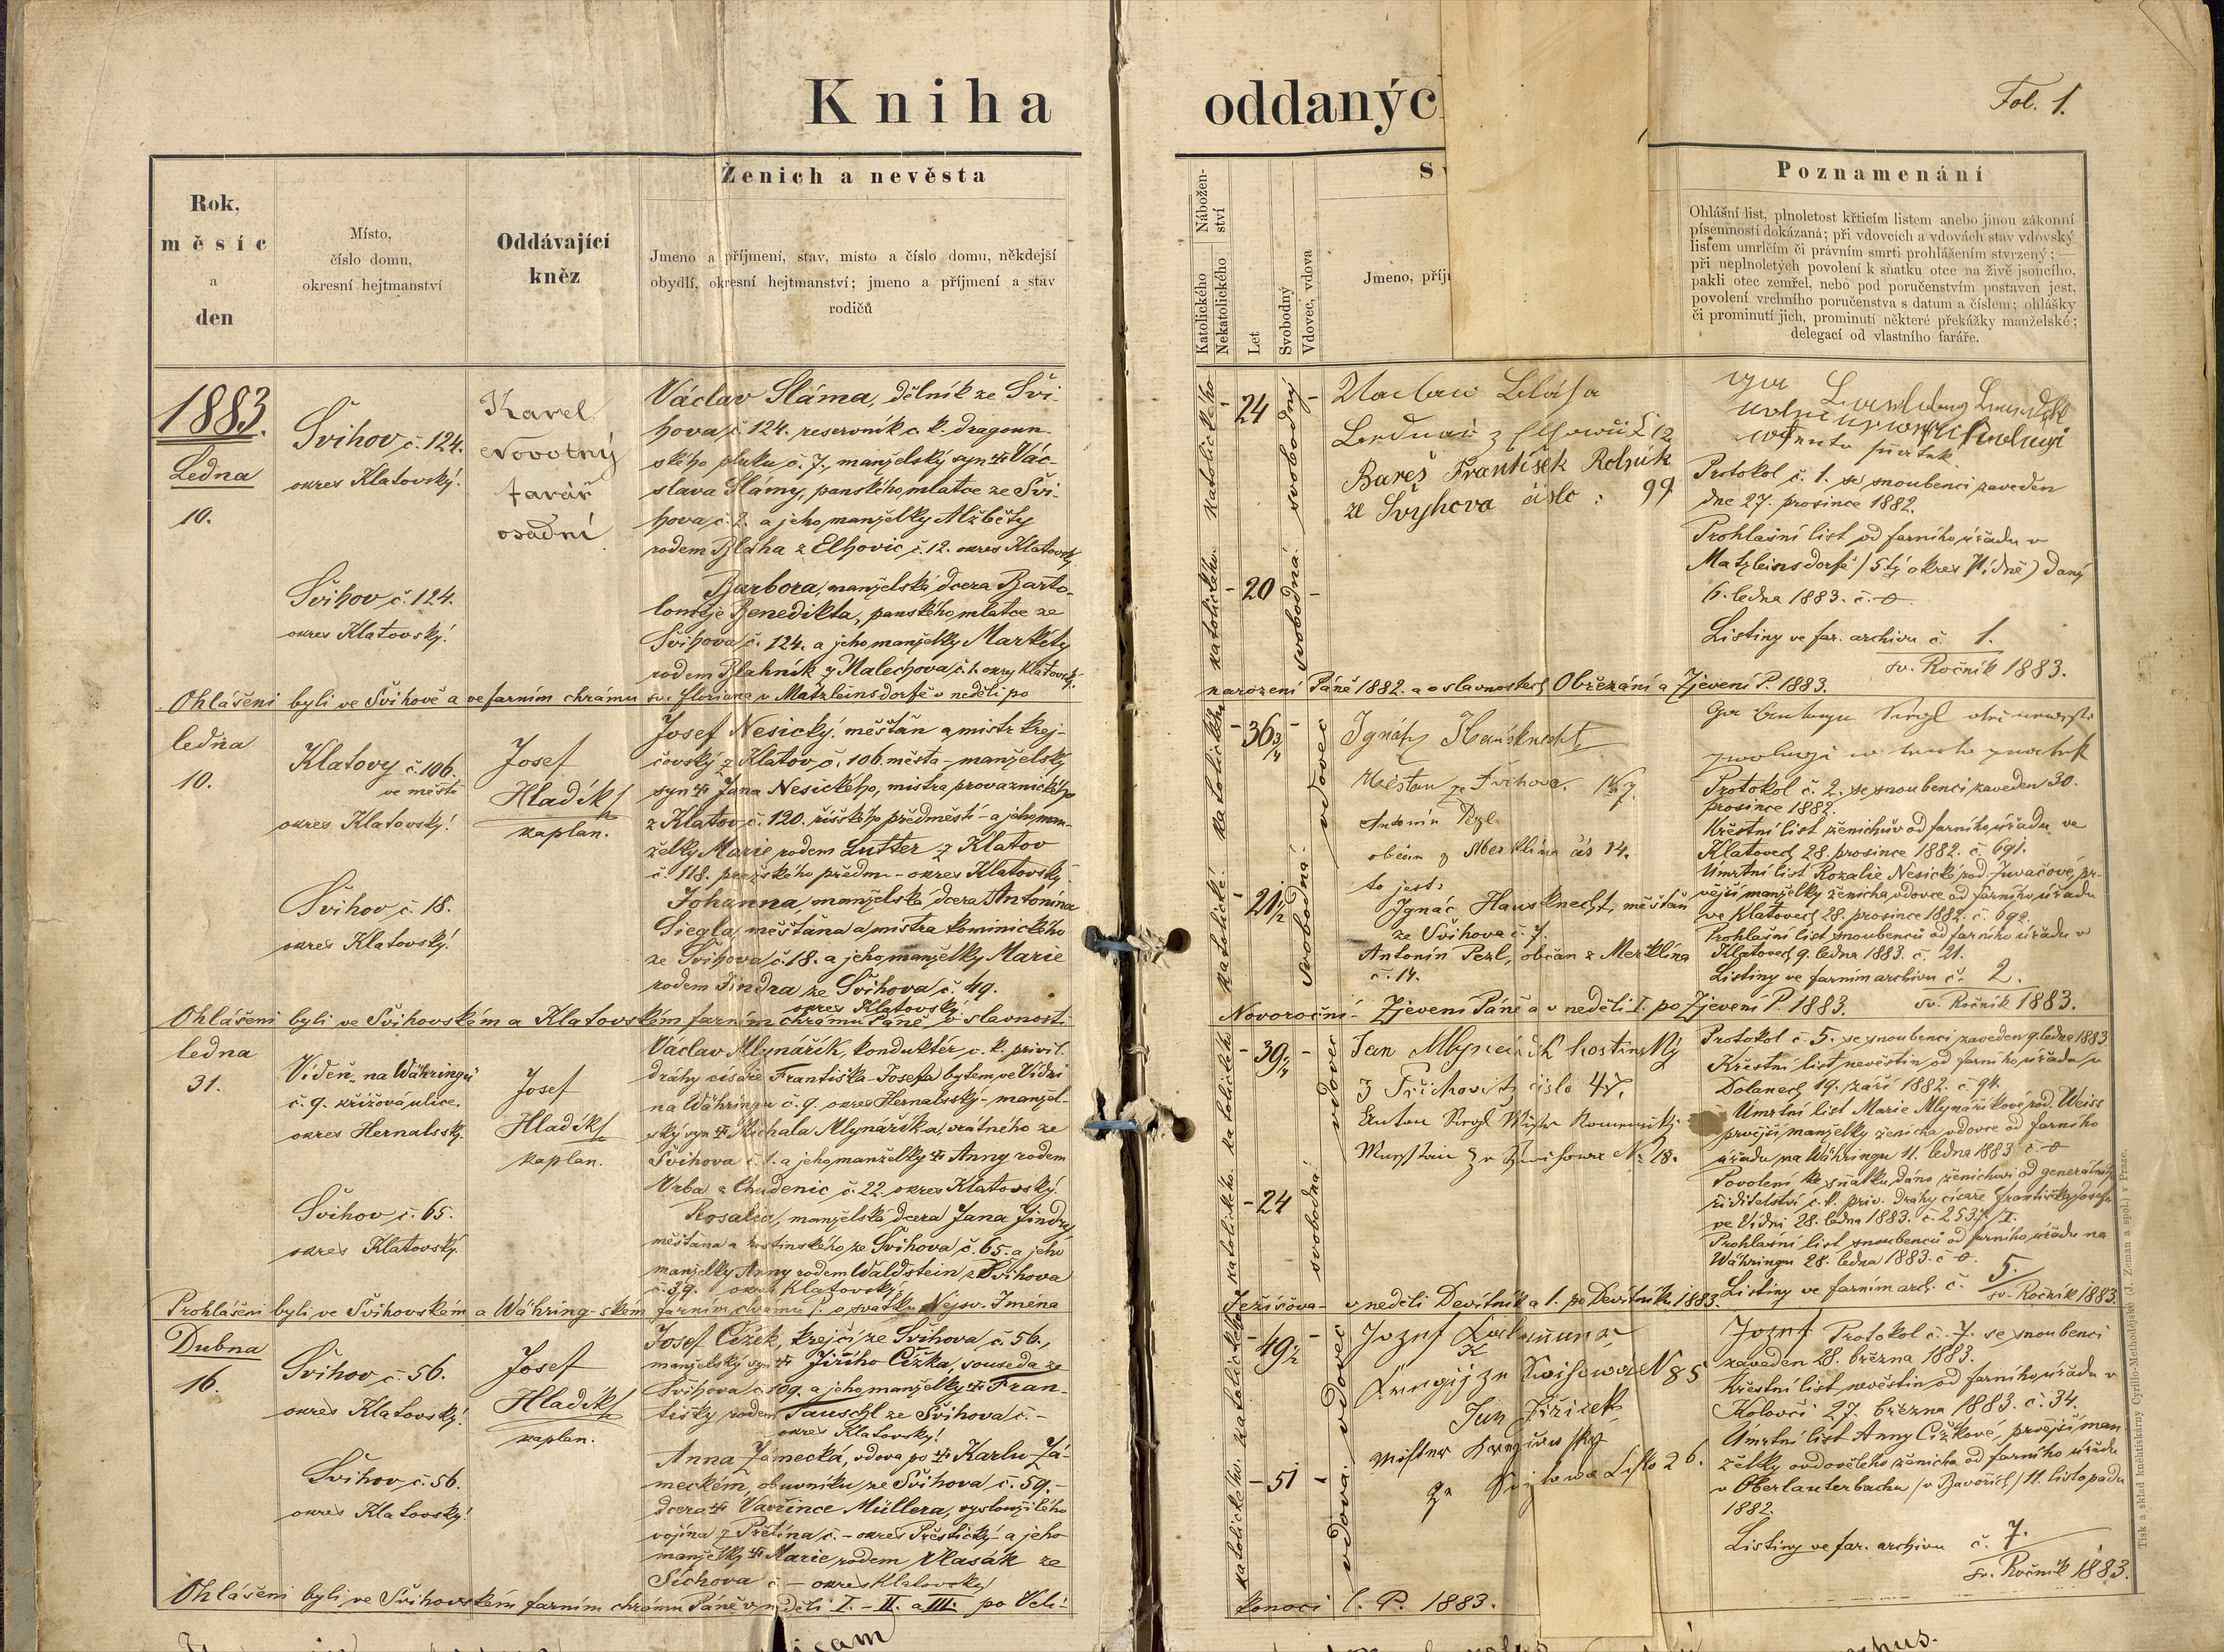 Kniha oddaných
Fol. 1.
Rok,
měsíc
a
den
Místo,
číslo domu,
okresní hejtmanství
Oddávající
kněz
Ženich a nevěsta
Jmeno a příjmení, stav, místo a číslo domu, někdejší
obydlí, okresní hejtmanství; jmeno a příjmení a stav
rodičů
Nábožen-
ství
Katolického
Nekatolického
Let
Svobodný
Vdovec, vdova
Jmeno, příj
Poznamenání
Ohlášní list, plnoletost křticím listem anebo jinou zákonní
písemností dokázaná; při vdovcích a vdovách stav vdovský
listem umrlčím či právním smrti prohlášením stvrzený; —
při neplnoletých povolení k sňatku otce na živě jsoucího,
pakli otec zemřel, nebo pod poručenstvím postaven jest,
povolení vrchního poručenstva s datum a číslem; ohlášky
či prominutí jich, prominutí některé překážky manželské;
delegací od vlastního faráře.
1883.
Ledna
10.
Švihov č. 124.
okres Klatovský.
Karel
Novotný
farář
osadní
Václav Sláma, dělník ze Švi-
hova č. 124. reservník c. k. dragoun-
ského pluku č. 7, manželský syn Vác-
slava Slámy, panského mlatce ze Švi-
hova č. 2. a jeho manželky Alžběty
rodem Bláha z Elhovic č. 12. okres Klatovský.
katolického
24
svobodný
Bareš František Rolník
ze Švyhova čislo: 99
Protokol č. 1. se snoubenci zaveden
dne 27. prosince 1882.
Prohlašní list od farního úřadu v
Matzleinsdorfě (5tý okres Vídně) daný
6. ledna 1883. č. 0.
Listiny ve far. archivu č. 1.
sv. Ročník 1883.
Švihov č. 124.
okres Klatovský.
Barbora, manželská dcera Barto-
loměje Benedikta, panského mlatce ze
Švihova č. 124. a jeho manželky Markéty
rodem Blahník z Malechova č. 1. okres Klatovský.
katolického.
20
svobodná.
Ohlášeni byli ve Švihově a ve farním chrámu sv. Floriana v Matzleinsdorfě v neděli po narození Páně 1882. a o slavnostech Obřezání a Zjevení P. 1883.
ledna
10.
Klatovy č. 106.
ve městě
okres Klatovský.
Josef
Hladík
kaplan.
Josef Nesický, měšťan a mistr krej-
čovský z Klatov č. 106. města - manželský
syn Jana Nesického, mistra provaznického
z Klatov č. 120. říšského předměstí - a jeho man-
želky Marie rodem Lutter z Klatov
č. 118. pražského předm. - okres Klatovský.
katolického
36 3/4
vdovec
Ignátz Hausknecht
Měšťan ze Švihova. č. 7.
Antonín Pezl
občan z Merklína čís 14.
to jest:
Ignác Hausknecht, měšťan
ze Švihova č. 7.
Antonín Pezl, občan z Merklína
č. 14.
Protokol č. 2. se snoubenci zaveden 30.
prosince 1882.
Křestní list ženichův od farního úřadu ve
Klatovech 28. prosince 1882. č. 691.
Úmrtní list Rozalie Nesické rod. Juvačové, pr-
vější manželky ženicha vdovce od farního úřadu
ve Klatovech 28. prosince 1882. č. 692.
Prohlašní list snoubenců od farního úřadu v
Klatovech 9. ledna 1883. č. 21.
Listiny ve farním archivu č. 2.
sv. Ročník 1883.
Švihov č. 18.
okres Klatovský.
Johanna, manželská dcera Antonína
Siegla, měšťana a mistra kominického
ze Švihova č. 18. a jeho manželky Marie
rodem Jindra ze Švihova č. 49.
okres Klatovský.
katolické.
21 1/2
svobodná.
Ohlášeni byli ve Švihovském a Klatovském farním chrámu Páně o slavnosti Novoroční - Zjevení Páně a v neděli I. po Zjevení P. 1883.
ledna
31.
Vídeň „na Währingu“
č. 9. křížová ulice.
okres Hernalsský.
Josef
Hladík
kaplan.
Václav Mlynářík, konduktér c. k. privil.
dráhy císaře Františka-Josefa bytem ve Vídni
na Währingu č. 9. okres Hernalsský - manžel-
ský syn Michala Mlynáříka, vrátného ze
Švihova č. 1. a jeho manželky Anny rodem
Vrba z Chudenic č. 22. okres Klatovský.
katolického
39 1/4
vdovec
Jan Mlynařík hostinský
číslo 47.
Protokol č. 5. se snoubenci zaveden 9. ledna 1883.
Křestní list nevěstin od farního úřadu v
Dolanech 19. září 1882. č. 94.
Úmrtní list Marie Mlynáříkové rod. Weiss
prvější manželky ženicha vdovce od farního
úřadu na Währingu 11. ledna 1883 č. 0
Povolení ke sňatku dáno ženichovi od generálního
ředitelství c. k. priv. dráhy císaře Františka Josefa
ve Vídni 28. ledna 1883. č. 2537/I.
Prohlašní list snoubenců od farního úřadu na
Währingu 28. ledna 1883. č. 0.
Listiny ve farním arch. č. 5.
sv. Ročník 1883.
Švihov č. 65.
okres Klatovský.
Rosalia, manželská dcera Jana Jindry,
měšťana a hostinského ze Švihova č. 65. a jeho
manželky Anny rodem Waldstein z Švihova
č. 39. okres Klatovský.
katolického.
24
svobodná
Prohlášeni byli ve Švihovském a Währing-ském farním chrámu P. o svátku Nejsv. Jména Ježíšova - v neděli Devítník a 1. po Devítníku 1883.
Dubna
16.
Švihov č. 56.
okres Klatovský.
Josef
Hladík
kaplan.
Josef Čížek, krejčí ze Švihova č. 56.,
manželský syn Jiřího Čížka, souseda ze
Švihova č. 109. a jeho manželky Fran-
tišky rodem Tauschl ze Švihova č. -
okres Klatovský.
katolického
49 1/2
vdovec
Jan Jiřiček
Protokol č. 7. se snoubenci
zaveden 28. března 1883.
Křestní list nevěstin od farního úřadu v
Kolovči 27. března 1883. č. 34.
Úmrtní list Anny Čížkové, prvější man-
želky ovdovělého ženicha od farního úřadu
v Oberlauterbachu (v Bavořích) 11. listopadu
1882.
Listiny ve far. archivu č. 7.
sv. Ročník 1883.
Švihov č. 56.
okres Klatovský.
Anna Zámecká, vdova po Karlu Zá-
meckém, obuvníku ze Švihova č. 59. -
dcera Vavřince Müllera, vysloužilého
vojína z Přetína č. - okres Přeštický - a jeho
manželky Marie rodem Vlasák ze
Síchova č. - okres Klatovský.
katolického.
51
vdova.
Ohlášeni byli ve Švihovském farním chrámu Páně v neděli I. - II. a III. po Veli-
konoci l. P. 1883.
Tisk a sklad knihtiskárny Cyrillo-Methodějské (J. Zeman a spol.) v Praze.